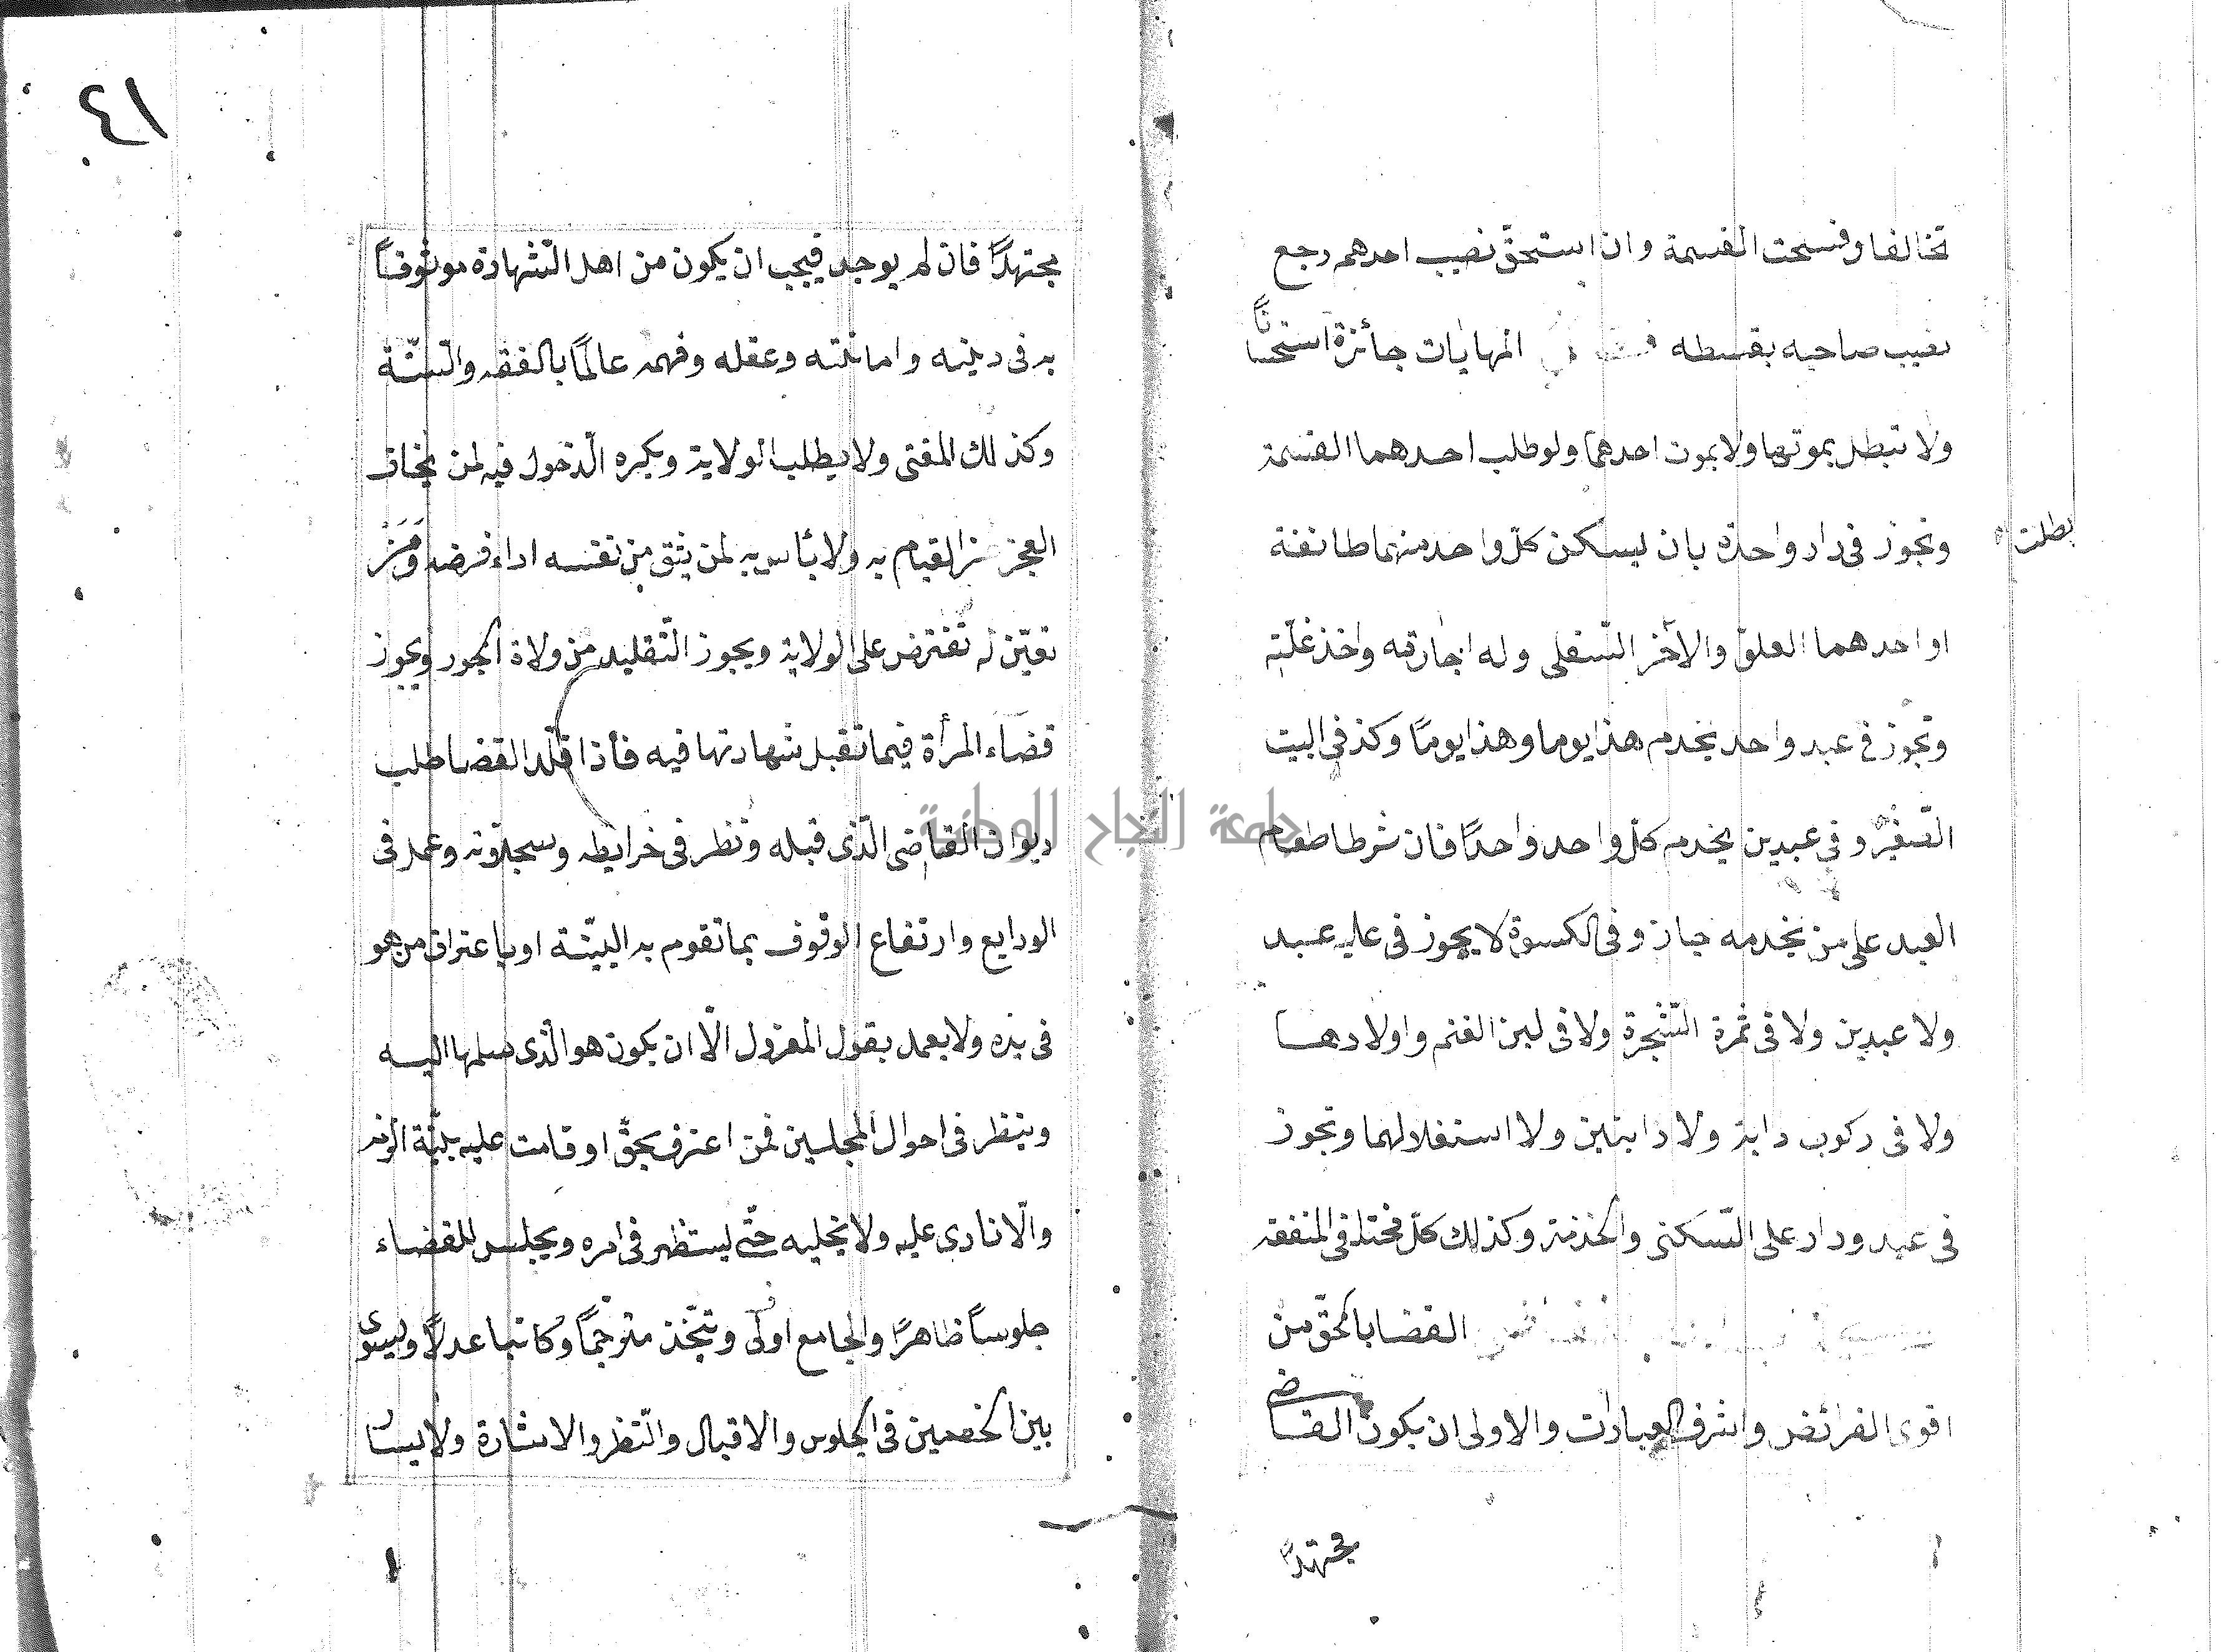 تخالفا وفسخت القسمة وان استحق نصيب احدهم رجع
نصيب صاحبه بقسطه المهايات جائزة استحسانًا
ولا تبطل بموتهما ولا بموت احدهما ولو طلب احدهما القسمة
بطلت
وتجوز في دار واحدة بان يسكن كلّ واحد منهما طائفة
او احدهما العلوّ والآخر السّفلى وله اجارته واخذ غلّته
وتجوز في عبد واحد يخدم هذا يوما وهذا يومًا وكذ في البيت
الصّغير و في عبدين يخدم كلّ واحد واحدًا فان شرطا طعام
العبد على من يخدمه جاز وفي الكسوة لا يجوز في عليه عبد
ولا عبدين ولا في ثمرة الشّجرة ولا في لبن الغنم واولادها
ولا في ركوب دابة ولا دابتين ولا استغلالهما وتجوز
في عبد ودار على السّكنى والخدمة وكذلك كلّ مختلفى المنفقه
القضا بالحقّ من
اقوى الفرائض واشرف العبادات والاولى ان يكون القاضى
مجتهدًا
٤١
مجتهدًا فان لم يوجد فيجب ان يكون من اهل الشّهادة موثوقًا
به فى دينه وامانته وعقله وفهمه عالمًا بالفقه والسّنّة
وكذلك المفتى ولا يطلب الولاية ويكره الدّخول فيه لمن يخاف
العجز عن القيام به ولا بأس به لمن يثق من نفسه اداء فرضه وَمَنْ
تعيّن له تفترض على الولاية ويجوز التّقليد من ولاة الجور ويجوز
قضاء المرأة فيما تقبل شهادتها فيه فأذا قلّد القضا طلب
ديوان القاضى الّذى قبله ونظر فى خرايطه وسجلاّته وعمل فى
الودايع وارتفاع الوقوف بما تقوم به البيّنة او باعتراف من هو
فى يده ولا يعمل بقول المعزول الّا ان يكون هو الّذى سلمها اليه
وينظر فى احوال المجلسين فمن اعترف بحقّ او قامت عليه بيّنة الزمه
والّا نادى عليه ولا يخليه حتّى يستظهر فى امره ويجلس للقضاء
جلوسًا ظاهرًا والجامع اولى ويتّخذ مترجمًا وكاتبا عدلًا ويسوى
بين الخصمين فى الجلوس والاقبال والنّظر والاشارة ولا يسارّ
جامعة النجاح الوطنية